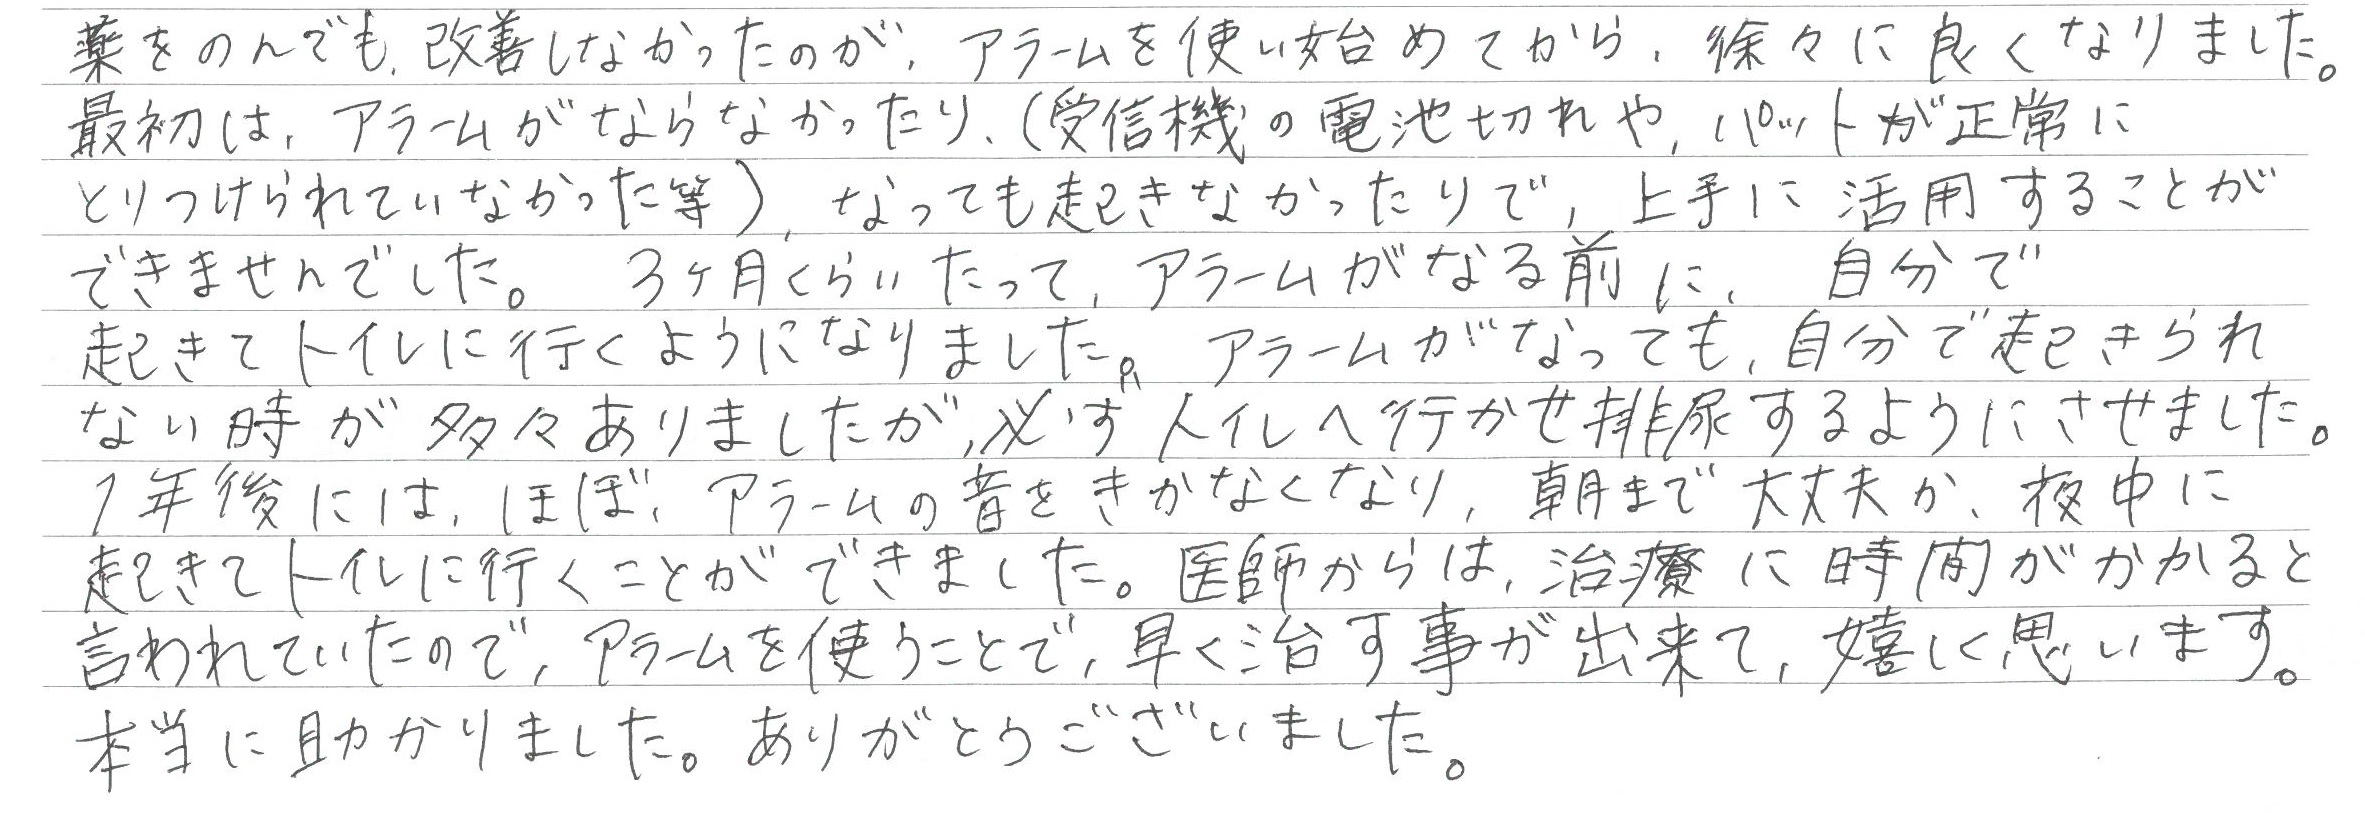 薬をのんでも、改善しなかったのが、アラームを使い始めてから、徐々に良くなりました。
最初は、アラームがならなかったり、(受信機の電池切れや、パットが正常に
とりつけられていなかった等)、なっても起きなかったりで、上手に活用することが
できませんでした。 3ヶ月くらいたって、アラームがなる前に、自分で
起きてトイレに行くようになりました。アラームがなっても、自分で起きられ
ない時が多々ありましたが、必ずトイレへ行かせ排尿するようにさせました。
1年後には、ほぼ、アラームの音をきかなくなり、朝まで大丈夫か、夜中に
起きてトイレに行くことができました。医師からは、治療に時間がかかると
言われていたので、アラームを使うことで、早く治す事が出来て、嬉しく思います。
本当に助かりました。ありがとうございました。